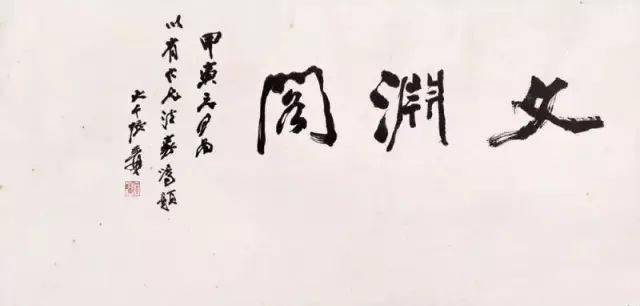 文淵閣
甲寅月為
以有法家題
大千張爰